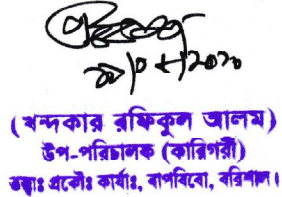 (খন্দকার রফিকুল আলম)
উপ-পরিচালক (কারিগরী)
তত্ত্বাঃ প্রকৌঃ কার্যাঃ, বাপবিবো, বরিশাল।